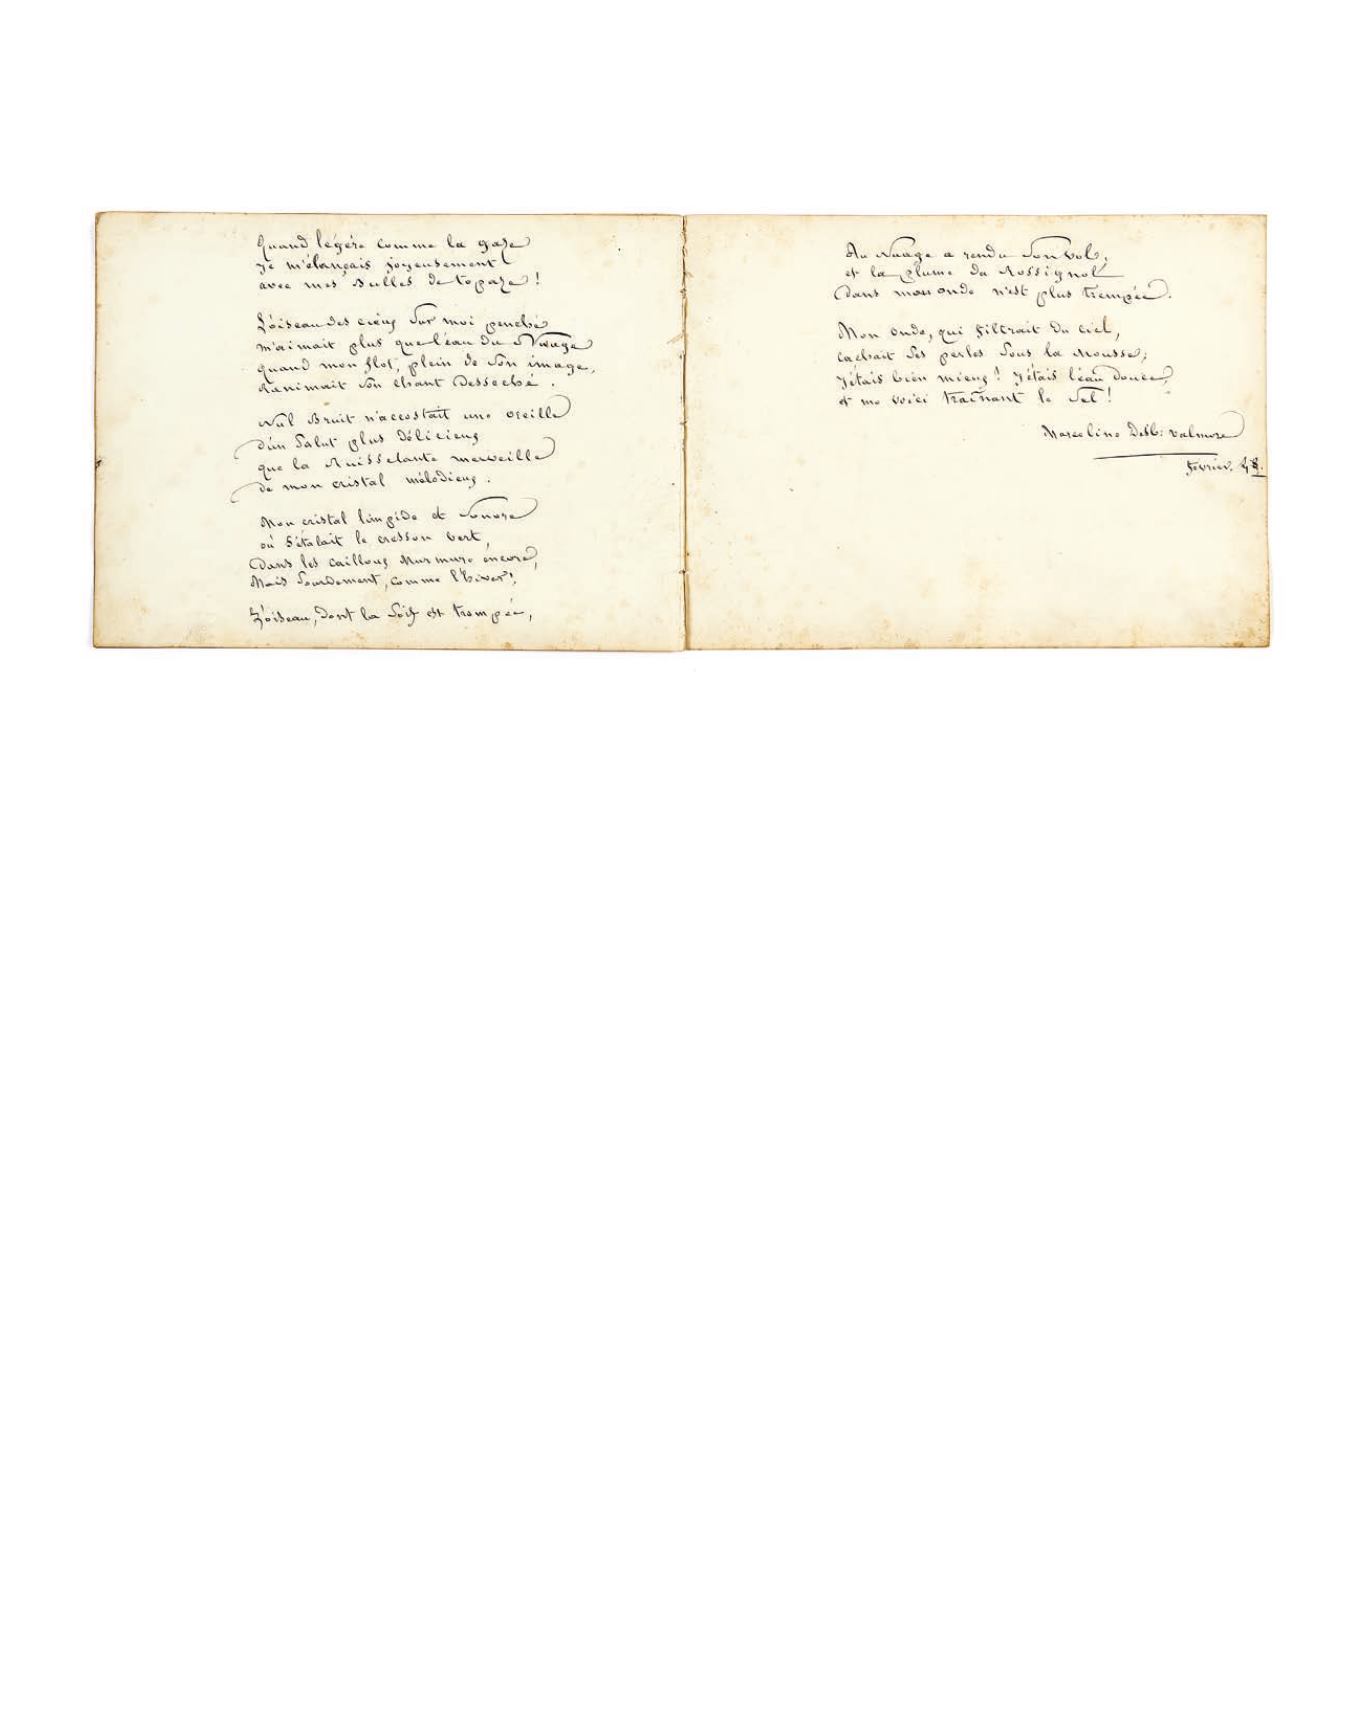 Quand légère comme la gaze
je m'élançais joyeusement
avec mes Bulles de topaze !
L'oiseau des cieux Sur moi penché
m'aimait plus que l'eau du Nuage
quand mon flot, plein de Son image,
Ranimait Son chant Desséché .
Nul Bruit n'accostait une oreille
d'un Salut plus délicieux
que la Ruisselante merveille
de mon cristal mélodieux .
Mon cristal limpide et Sonore
où s'étalait le cresson vert,
Dans les cailloux Murmure encore,
Mais Sourdement, comme l'hiver !
L'oiseau, dont la Soif est trompée,
Au Nuage a rendu Son vol,
et la plume du Rossignol
Dans mon onde n'est plus trempée .
Mon onde, qui filtrait du ciel,
cachait Ses perles Sous la Mousse ;
j'étais bien mieux ! j'étais l'eau douce,
et me voici traînant le Sel !
Marceline Desb. valmore
février, 48.